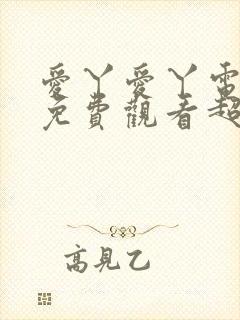 愛丫愛丫電
免費觀看超
高見乙